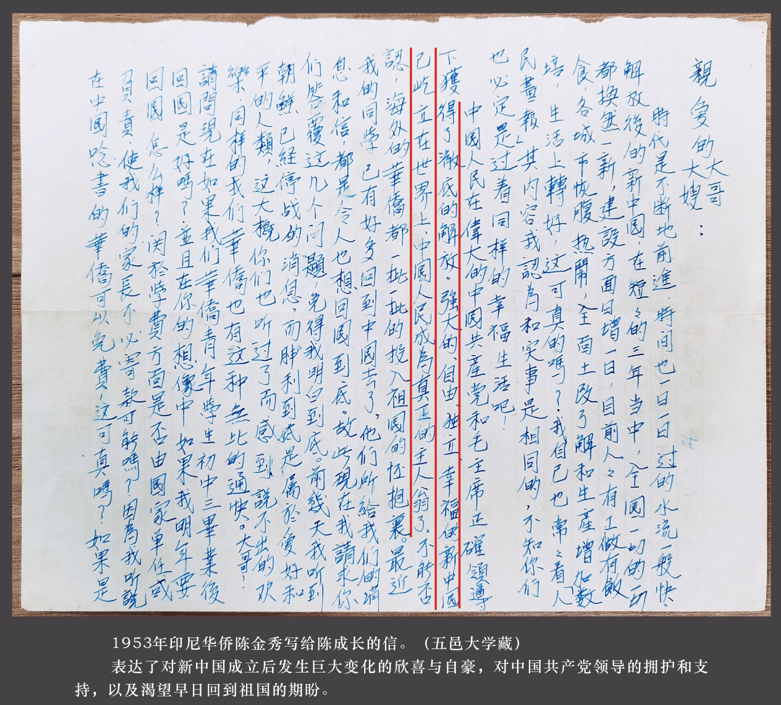 親愛的大哥
大嫂：
時代是不断地前進，時间也一日一日过的水流一般快，
解放後的新中國，在短々的三年当中，全國一切的一切
都换然一新，建設方面日增一日，目前人々有工做有飯
食，各城市恢腹热鬧，全面土改了解和生產增加數
培，生活上轉好，这可真的嗎？我自己也常々看「人
民畫報」其内容我認為和实事是相同的，不知你们
也必定是过看同样的幸福生活吧！
中國人民在偉大的中國共產党和毛主席正確領導
下獲得了澈底的解放，強大的、自由、独立、幸福的新中國
已屹立在世界上，中國人民成為真正的主人翁了，不能否
認，海外的華僑都一批一批的投入祖國的怀抱裏。最近
我的同学已有好多回到中國去了，他们所给我们的消
息和信，都是令人也想回國到底。故此現在我請求你
们答覆这几个问题，免得我明白到底。前幾天我听到
朝鮮已經停战的消息，而勝利到底是属於爱好和
平的人類，这大概你们也听过了而感到説不出的欢
樂，同样的我们華僑也有这种無比的通快。大哥？
請問現在如果我们華僑青年学生初中三畢業後
回國是好嗎？並且在你的想像中如果我明年要
回國怎么样？関於学費方面是否由國家单任或
負責，使我们的家長不必寄款可能嗎？因為我听説
在中國唸書的華僑可以免費，这可真嗎？如果是
1953年印尼华侨陈金秀写给陈成长的信。（五邑大学藏）
表达了对新中国成立后发生巨大变化的欣喜与自豪，对中国共产党领导的拥护和支
持，以及渴望早日回到祖国的期盼。